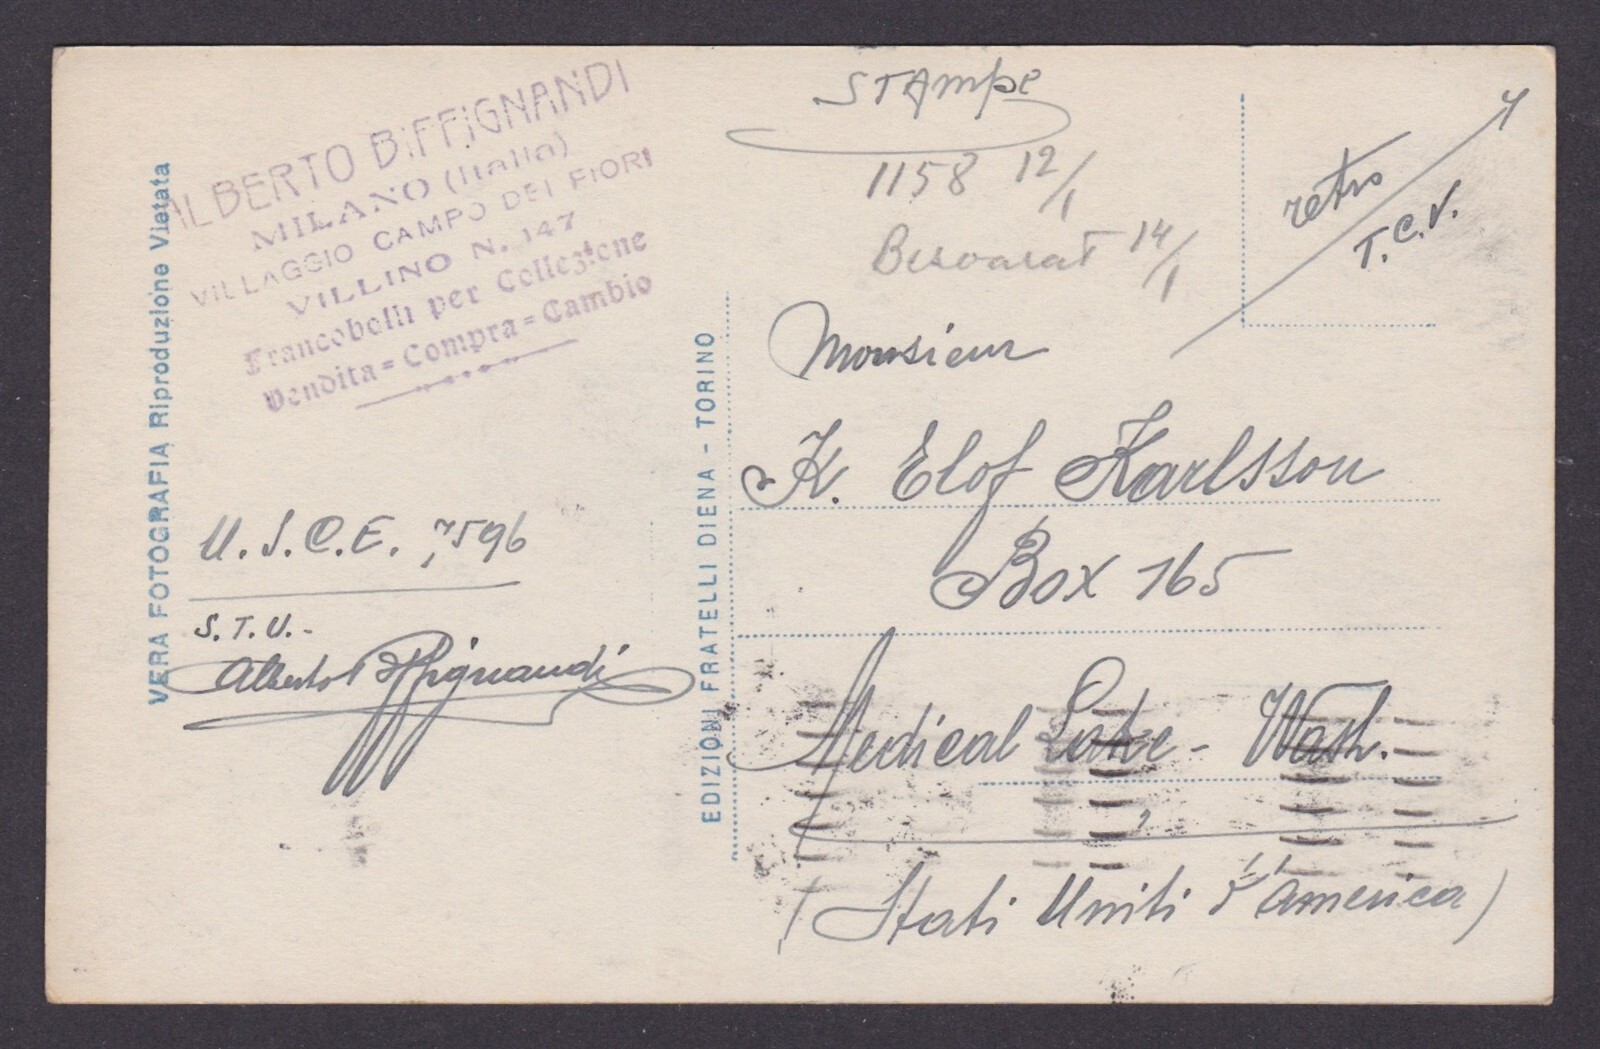 ALBERTO BIFFIGNANDI
MILANO (Italia)
VILLAGGIO CAMPO DEI FIORI
VILLINO N. 147
Francobolli per Collezione
Vendita=Compra=Cambio
VERA FOTOGRAFIA Riproduzione Vietata
U.S.C.E. 7596
S.T.U.-
Alberto Biffignandi
EDIZIONI FRATELLI DIENA - TORINO
STAmpe
1158 12/1
Besvarat 14/1
retro
T.C.V.
Monsieur
K. Elof Karlsson
Box 165
Medical Lake - Wash.
(Stati Uniti d'America)